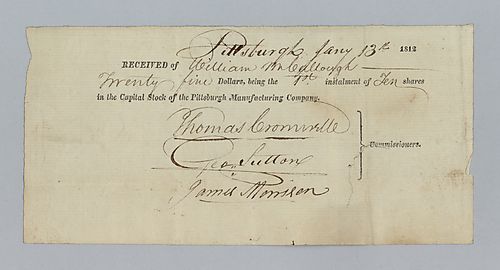 Pittsburgh Jany 13th 1812
RECEIVED of William McCullough
Twenty five Dollars, being the 1st instalment of Ten shares
in the Capital Stock of the Pittsburgh Manufacturing Company.
Thomas Cromwell
Geo. Sutton
James Morrison
Commissioners.